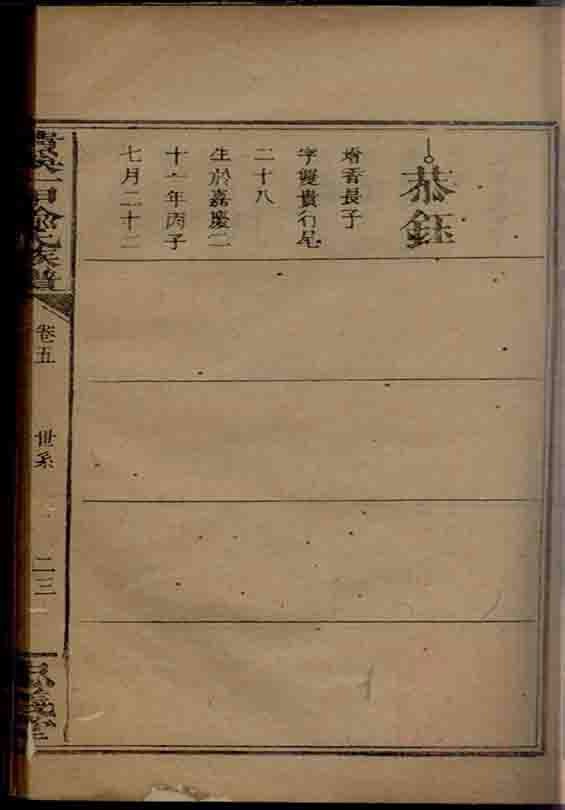 恭鈺
增香長子
字雙貴行尾
二十八
生於嘉慶二
十一年丙子
七月二十二
族譜
卷五
世系
二三
堂